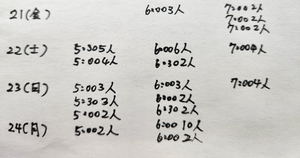 21(金) 6:003人 7:002人
7:002人
7:002人
22(土) 5:305人 6:006人 7:004人
5:004人 6:302人
23(日) 5:003人 6:003人 7:004人
5:303人 6:002人
5:002人 6:302人
24(月) 5:002人 6:0010人
6:002人